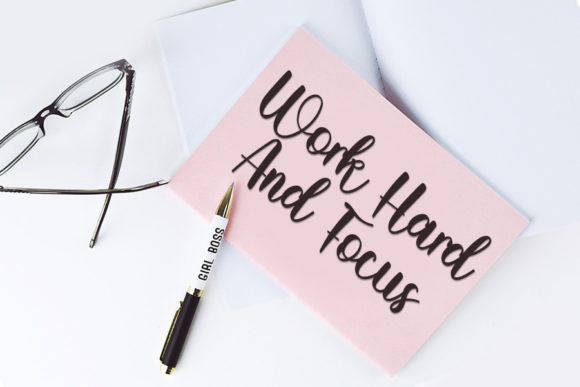 Work Hard
And Focus
GIRL BOSS